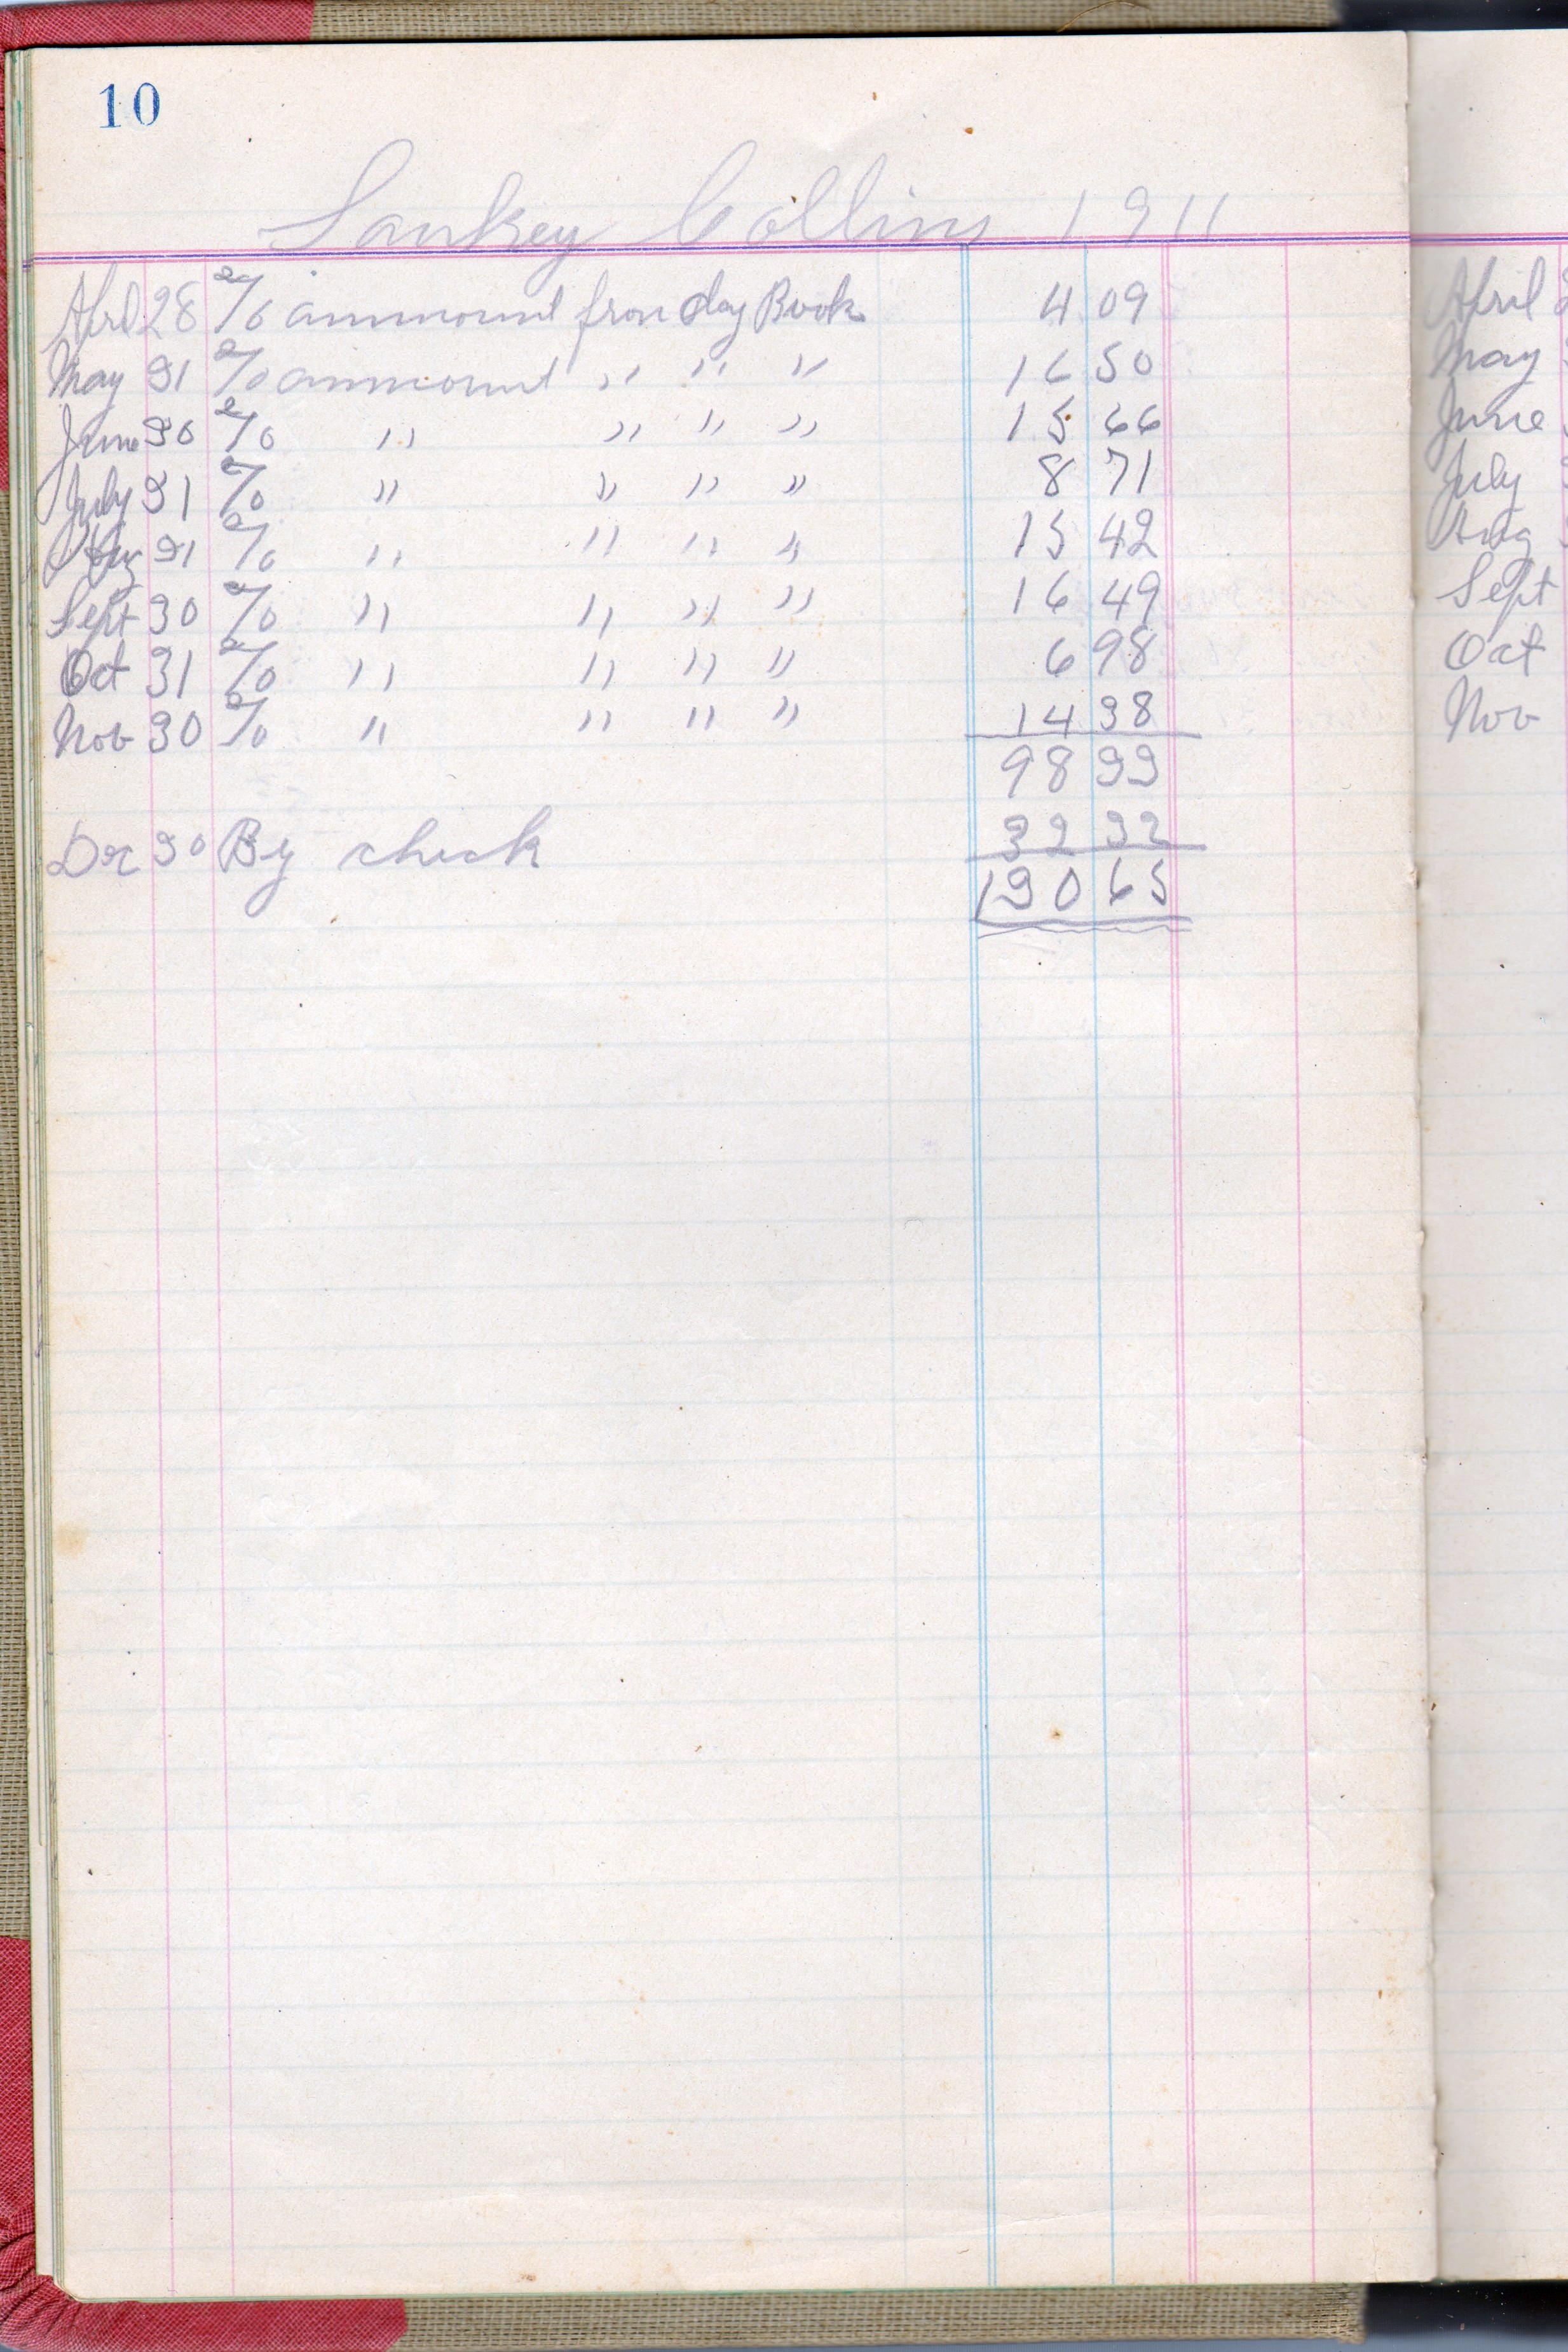 10
Sankey Collins 1911
April 28 a/c ammount from day Book 4 09
May 31 a/c ammount " " " 16 50
June 30 a/c " " " " 15 66
July 31 a/c " " " " 8 71
Aug 31 a/c " " " " 15 42
Sept 30 a/c " " " " 16 49
Oct 31 a/c " " " " 6 98
Nov 30 a/c " " " " 14 38
98 33
Dec 30 By check 32 32
130 65
April
May
June
July
Aug
Sept
Oct
Nov